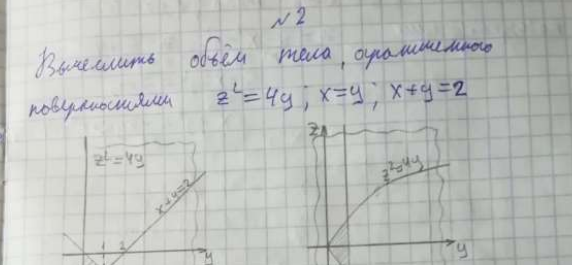 №2
Вычеслить объём тела, ограниченного
поверхностями z² = 4y; x = y; x + y = 2
z² = 4y
x + y = 2
1 2
y
z
z² = 4y
y